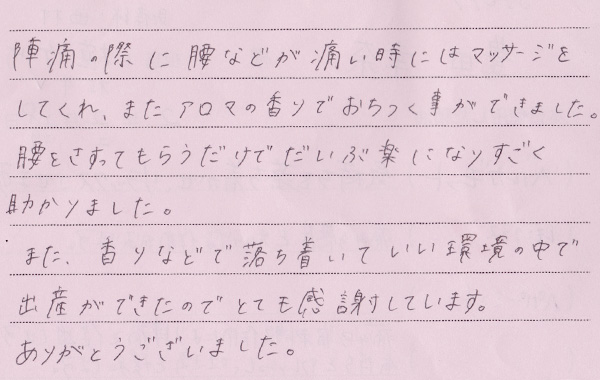 陣痛の際に腰などが痛い時にはマッサージを
してくれ、またアロマの香りでおちつく事ができました。
腰をさすってもらうだけでだいぶ楽になりすごく
助かりました。
また、香りなどで落ち着いていい環境の中で
出産ができたのでとても感謝しています。
ありがとうございました。